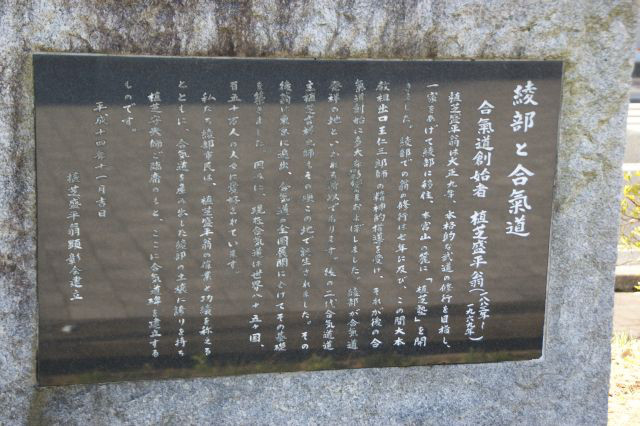 綾部と合氣道
合氣道創始者　植芝盛平翁(一八八三年〜一九六九年)
植芝盛平翁は大正九年、本格的な武道の修行を目指し、
一家をあげて綾部に移住、本宮山の麓に「植芝塾」を開
きました。綾部での翁の修行は七年に及び、この間大本
教祖出口王仁三郎師の精神的指導を受け、それが後の合
氣道創始に多大な影響をおよぼしました。綾部が合氣道
発祥の地といわれる所以であります。後の二代合氣道道
主植芝吉祥丸師も、その頃この地で誕生されました。その
後翁は東京に進出、合氣道の全国展開にむけてその基礎
を築きました。因みに、現在合氣道は世界八十五ヶ国、
百五十万人の人々に愛好されています。
私たち綾部市民は、植芝盛平翁の偉業と功績を称える
とともに、合氣道を産み出した綾部の土壌に誇りを持ち
植芝守央道主ご臨席のもと、ここに合氣道碑を建立する
ものです。
平成十四年十一月吉日
植芝盛平翁顕彰会建立